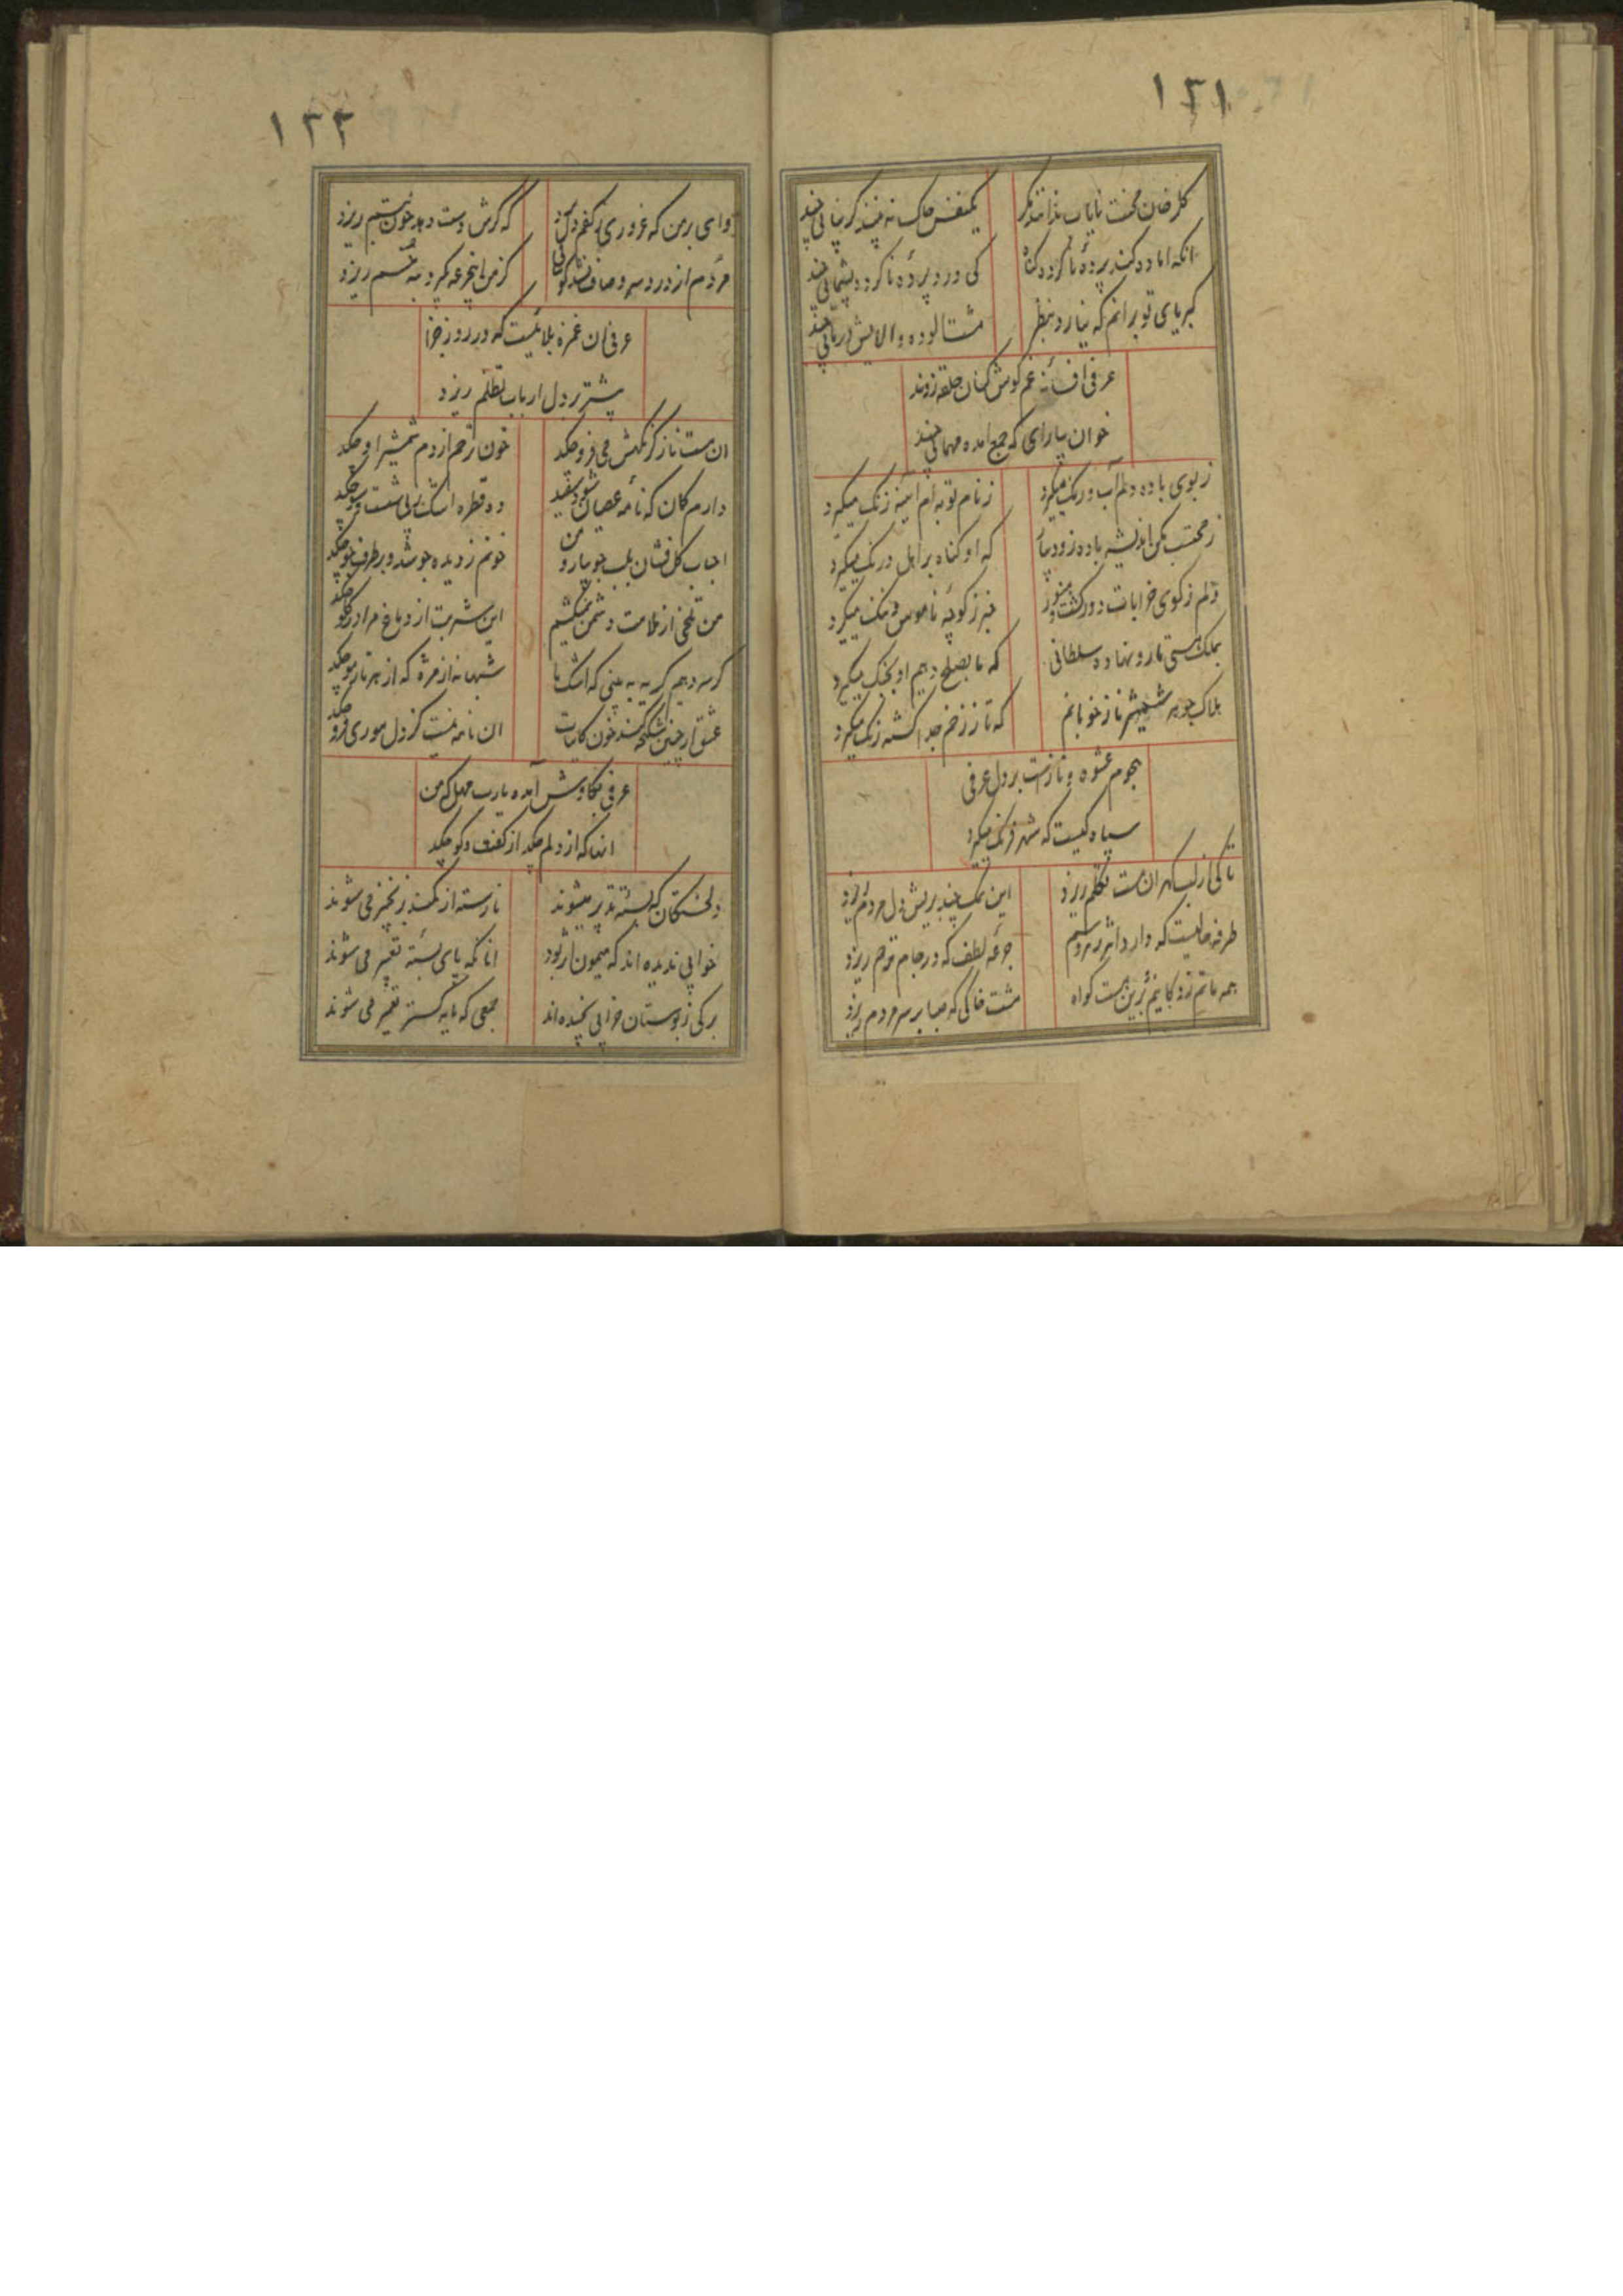 ۱۲۱
گلرخان محنت نایاب ندانند مگر
یکنفس چاک نه بینند گریبانی چند
انکه اماده کند پرده ناکرده گناه
کی درد پرده ناکرده پشیمانی چند
کبریای تو برانم که نیارد بنظر
مشت الوده و الایش دامانی چند
عرفی افسانه غم گوش کنان حلقه زدند
خوان بیارای که جمع امده مهمانی چند
ز بوی باده دلم آب و رنگ میگیرد
ز نام توبه ام ایینه زنگ میگیرد
ز محتسب مکن اندیشه باده زود بیار
که او گناه بر اهل درنگ میگیرد
دلم ز کوی خرابات دور گشت و هنوز
خبر ز کوچه ناموس و ننگ میگیرد
بملک هستی ما رو نهاده سلطانی
که ما بصلح دهیم او بجنگ میگیرد
هلاک جوهر شمشیر ناز خوبانم
که تا ز زخم جدا گشته زنگ میگیرد
هجوم عشوه و نازست بر دل عرفی
سپاه کیست که شهر فرنگ میگیرد
تا کی از لب گهر ان مست تکلم ریزد
این نمک چند بریش دل مردم ریزد
طرفه حالیست که دارد اثر زهر و سیم
جرعه لطف که در جام ترحم ریزد
همه ماتم زدگانیم برین هست گواه
مشت خاکی که صبا بر سر مردم ریزد
۱۲۲
وای بر من که غروری بکفم دل
که گرش دست دهد خون تبسم ریزد
مردم از درد سر و صاف نشد
گر من این جرعه نگیرد به خم ریزد
عرفی ان غمزه بلائیست که در روز جزا
بیشتر بر دل ارباب تظلم ریزد
ان مست ناز کز نگهش می فرو چکد
خون ترحم از دم شمشیر او چکد
دارم گمان که نامه عصیان شود سفید
ده قطره اشک پی شست و شو چکد
احباب گل فشان بلب جویبار و من
خونم ز دیده جوشد و بر طرف جو چکد
من تلخی از ملامت دشمن نمیکشم
این شربت از دماغ مرا در گلو چکد
گر سر دهیم گریه به بینی که اشک ما
شبها نه از مژه که از هر تار مو چکد
عشق ار چنین شکنجه کند خون کاینات
ان نامه نیست کز دل موری فرو چکد
عرفی بکاوش آمده یارب مهل که من
انها که از دلم چکد از گفت و گو چکد
دلخستگان که بسته تدبیر میشوند
نارسته از کمند بزنجیر می شوند
خوابی ندیده اند که میمون اثر بود
انانکه پای بسته تعبیر می شوند
برگی ز بوستان خرابی نچیده اند
جمعی که مایه گستر تعمیر می شوند